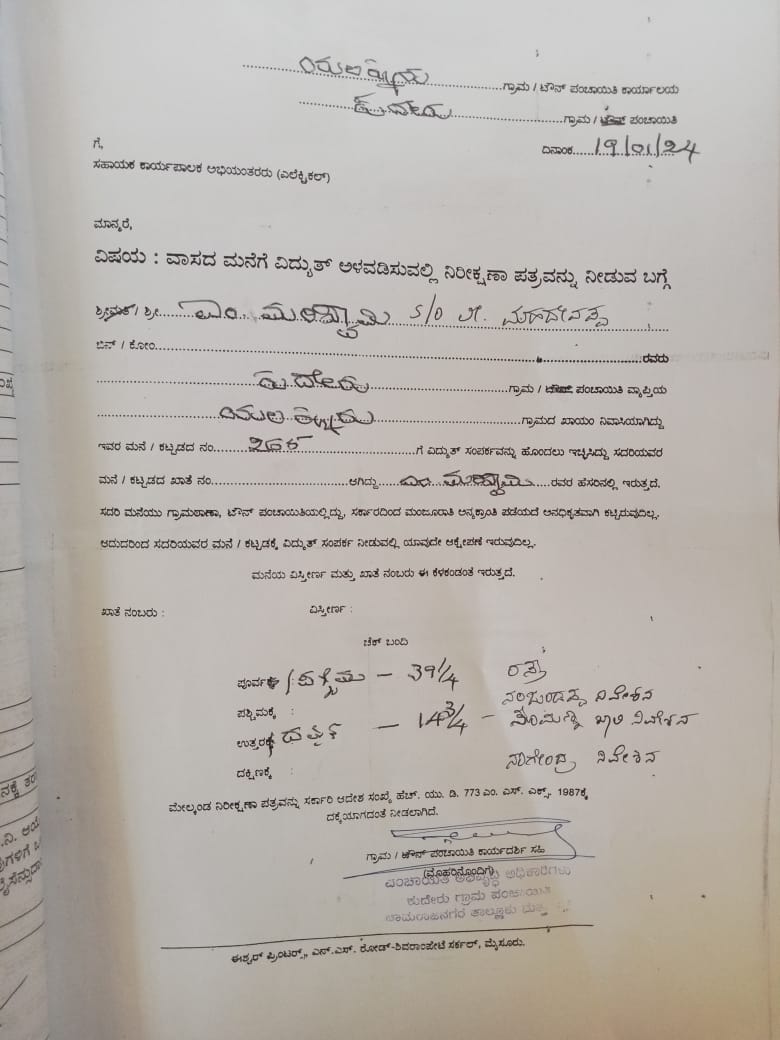 ಗ್ರಾಮ / ಟೌನ್ ಪಂಚಾಯಿತಿ ಕಾರ್ಯಾಲಯ
ಕುದೇರು ಗ್ರಾಮ / ಟೌನ್ ಪಂಚಾಯಿತಿ
ದಿನಾಂಕ 19/01/24
ಗೆ,
ಸಹಾಯಕ ಕಾರ್ಯಪಾಲಕ ಅಭಿಯಂತರರು (ಎಲೆಕ್ಟ್ರಿಕಲ್)
ಮಾನ್ಯರೆ,
ವಿಷಯ : ವಾಸದ ಮನೆಗೆ ವಿದ್ಯುತ್ ಅಳವಡಿಸುವಲ್ಲಿ ನಿರೀಕ್ಷಣಾ ಪತ್ರವನ್ನು ನೀಡುವ ಬಗ್ಗೆ
ಶ್ರೀಮತಿ/ ಶ್ರೀ S/O ಮಹದೇವಪ್ಪ
ಬಿನ್ / ಕೋಂ ರವರು
ಕುದೇರು ಗ್ರಾಮ / ಟೌನ್ ಪಂಚಾಯಿತಿ ವ್ಯಾಪ್ತಿಯ
ಗ್ರಾಮದ ಖಾಯಂ ನಿವಾಸಿಯಾಗಿದ್ದು
ಇವರ ಮನೆ / ಕಟ್ಟಡದ ನಂ. ಗೆ ವಿದ್ಯುತ್ ಸಂಪರ್ಕವನ್ನು ಹೊಂದಲು ಇಚ್ಛಿಸಿದ್ದು ಸದರಿಯವರ
ಮನೆ / ಕಟ್ಟಡದ ಖಾತೆ ನಂ. ಆಗಿದ್ದು ರವರ ಹೆಸರಿನಲ್ಲಿ ಇರುತ್ತದೆ.
ಸದರಿ ಮನೆಯು ಗ್ರಾಮಠಾಣಾ, ಟೌನ್ ಪಂಚಾಯಿತಿಯಲ್ಲಿದ್ದು, ಸರ್ಕಾರದಿಂದ ಮಂಜೂರಾತಿ ಅನ್ಯಕ್ರಾಂತಿ ಪಡೆಯದೆ ಅನಧಿಕೃತವಾಗಿ ಕಟ್ಟಿರುವುದಿಲ್ಲ.
ಆದುದರಿಂದ ಸದರಿಯವರ ಮನೆ / ಕಟ್ಟಡಕ್ಕೆ ವಿದ್ಯುತ್ ಸಂಪರ್ಕ ನೀಡುವಲ್ಲಿ ಯಾವುದೇ ಆಕ್ಷೇಪಣೆ ಇರುವುದಿಲ್ಲ.
ಮನೆಯ ವಿಸ್ತೀರ್ಣ ಮತ್ತು ಖಾತೆ ನಂಬರು ಈ ಕೆಳಕಂಡಂತೆ ಇರುತ್ತದೆ.
ಖಾತೆ ನಂಬರು : ವಿಸ್ತೀರ್ಣ :
ಚೆಕ್ ಬಂದಿ
ಪೂರ್ವಕ್ಕೆ / ಪಶ್ಚಿಮ - 39 1/4 ರಸ್ತೆ
ಪಶ್ಚಿಮಕ್ಕೆ : ನಂಜುಂಡಪ್ಪ ನಿವೇಶನ
ಉತ್ತರಕ್ಕೆ - 14 3/4 - ಖಾಲಿ ನಿವೇಶನ
ದಕ್ಷಿಣಕ್ಕೆ : ನಾಗೇಂದ್ರ ನಿವೇಶನ
ಮೇಲ್ಕಂಡ ನಿರೀಕ್ಷಣಾ ಪತ್ರವನ್ನು ಸರ್ಕಾರಿ ಆದೇಶ ಸಂಖ್ಯೆ ಹೆಚ್. ಯು. ಡಿ. 773 ಎಂ. ಎಸ್. ಎಕ್ಸ್. 1987ಕ್ಕೆ
ದಕ್ಕೆಯಾಗದಂತೆ ನೀಡಲಾಗಿದೆ.
ಗ್ರಾಮ / ಟೌನ್ ಪಂಚಾಯಿತಿ ಕಾರ್ಯದರ್ಶಿ ಸಹಿ
(ಮೊಹರಿನೊಂದಿಗೆ)
ಪಂಚಾಯಿತಿ ಅಭಿವೃದ್ಧಿ ಅಧಿಕಾರಿಗಳು
ಕುದೇರು ಗ್ರಾಮ ಪಂಚಾಯಿತಿ
ಚಾಮರಾಜನಗರ ತಾಲ್ಲೂಕು
ಈಶ್ವರ್ ಪ್ರಿಂಟರ್ಸ್, ಎನ್.ಎಸ್. ರೋಡ್-ಶಿವರಾಂಪೇಟೆ ಸರ್ಕಲ್, ಮೈಸೂರು.